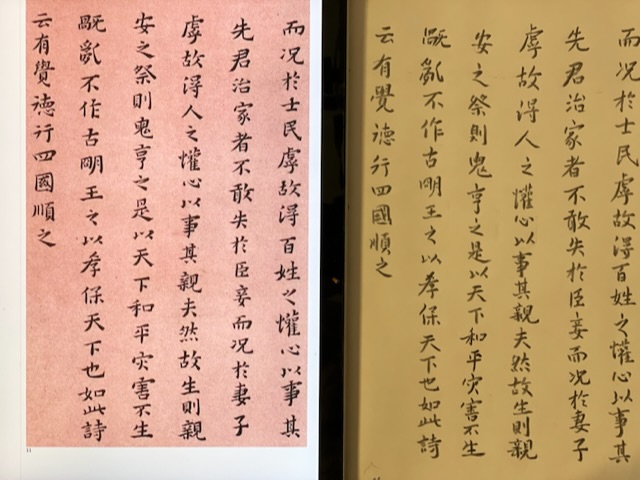 而况於士民虖故得百姓之懽心以事其
先君治家者不敢失於臣妾而况於妻子
虖故得人之懽心以事其親夫然故生則親
安之祭則鬼亨之是以天下和平灾害不生
旤亂不作古明王之以孝保天下也如此詩
云有覺德行四國順之
11
而况於士民虖故得百姓之懽心以事其
先君治家者不敢失於臣妾而况於妻子
虖故得人之懽心以事其親夫然故生則親
安之祭則鬼亨之是以天下和平灾害不生
旤亂不作古明王之以孝保天下也如此詩
云有覺德行四國順之